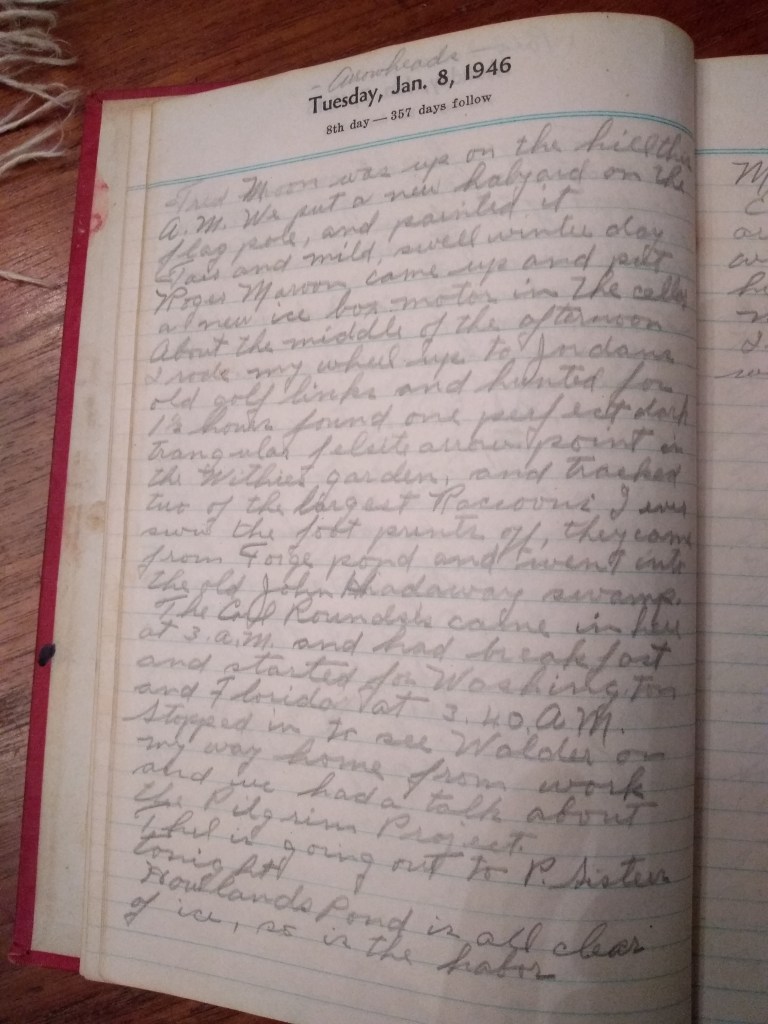 - Arrowheads -
Tuesday, Jan. 8, 1946
8th day — 357 days follow
Fred Moon was up on the hill this
A.M. We put a new halyard on the
flag pole, and painted it
Fair and mild, swell winter day
Roger came up and put
a new ice box motor in the cellar
About the middle of the afternoon
I rode my wheel up to Jordans
old golf links and hunted for
1½ hours found one perfect dark
trangular felsite arrow point in
the Withies garden, and tracked
two of the largest Raccoons I ever
saw the foot prints of, they came
from Forge pond and went into
the old John swamp.
The Carl came in here
at 3. A.M. and had breakfast
and started for Washington
and Florida at 3.40. A.M.
Stopped in to see Walder on
my way home from work
and we had a talk about
the Pilgrim Project.
is going out to P. Sisters
tonight
Howlands Pond is all clear
of ice, so is the habor